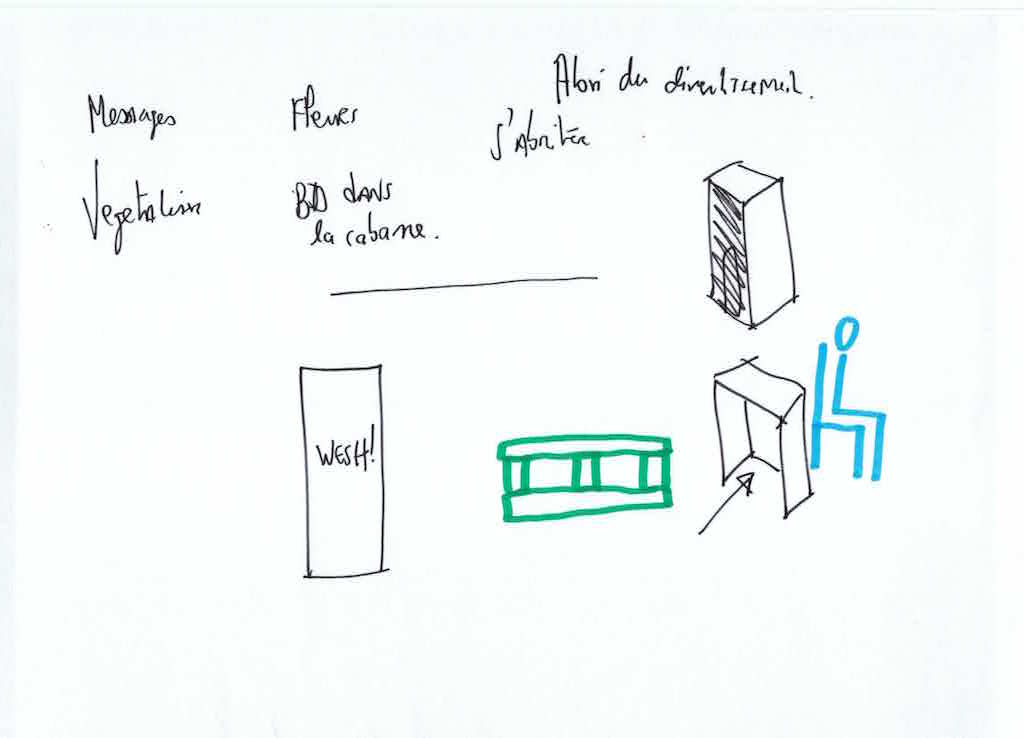 Abri du divertissement.
Messages
Fleurs
S'Abriter
Végétation
BD dans
la cabane.
WESH!